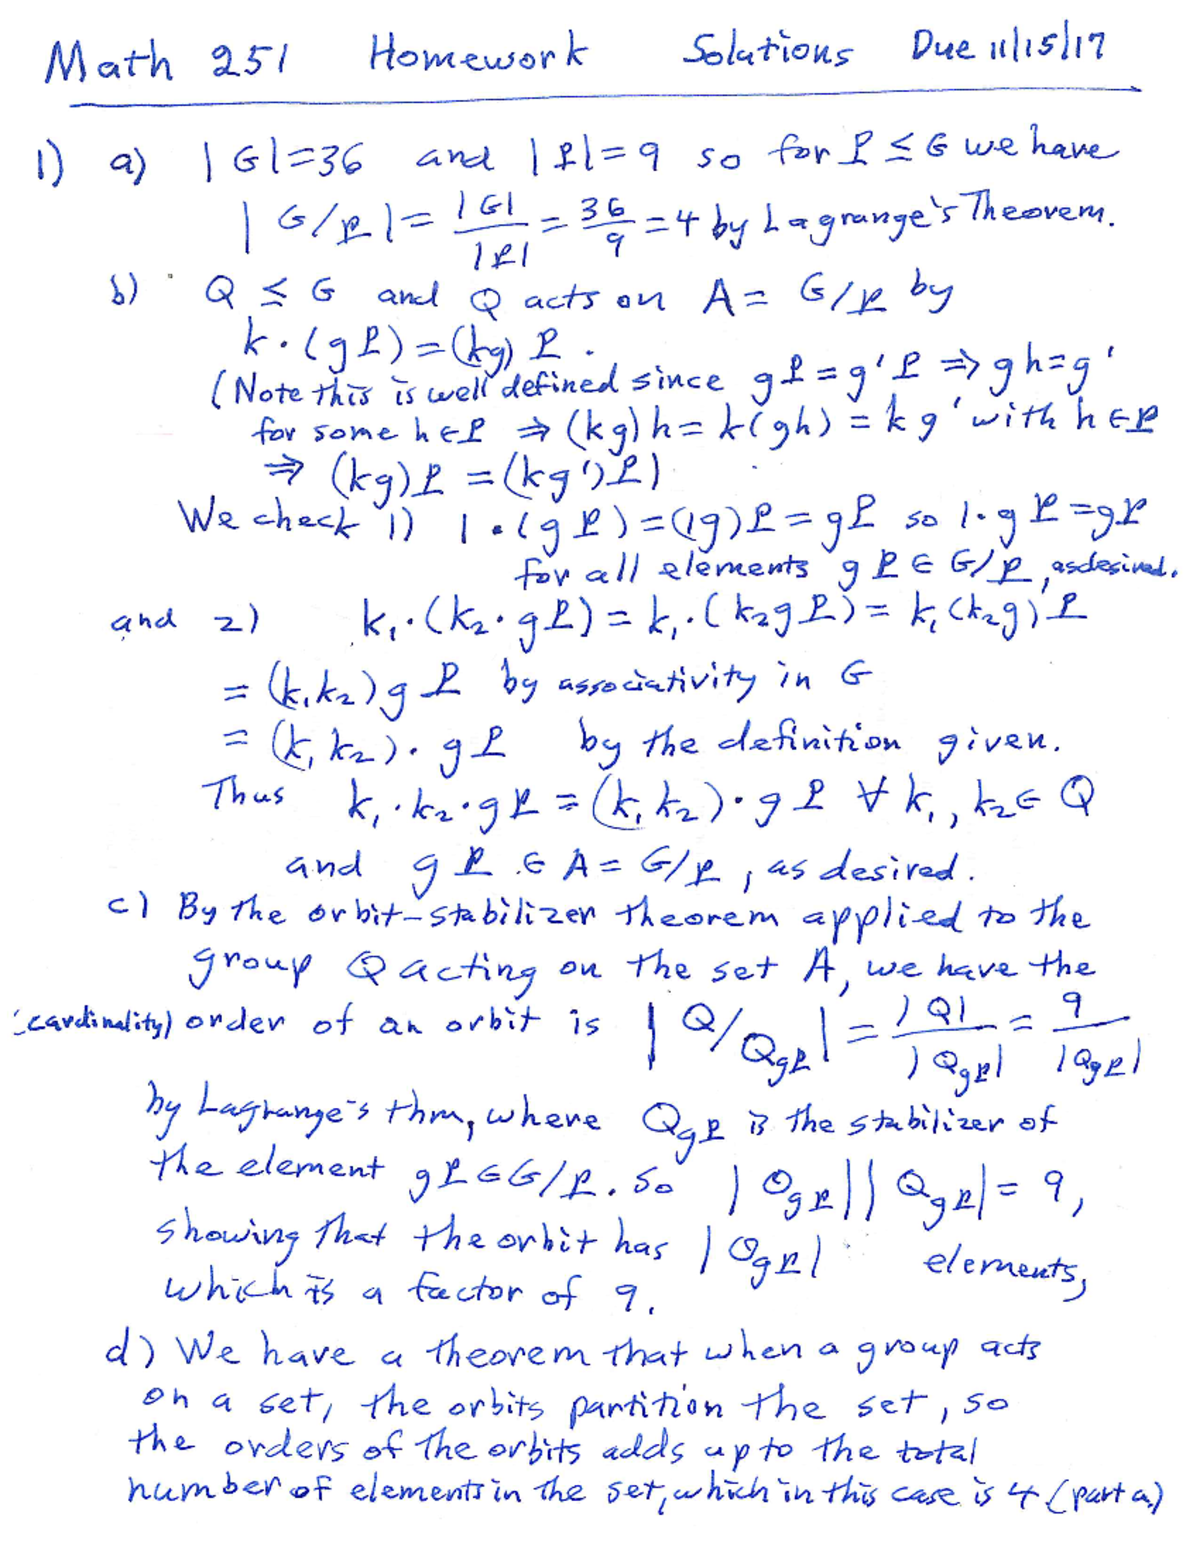 Math 251 Homework Solutions Due 11/15/17
1) a) |G|=36 and |P|=9 so for P ≤ G we have
|G/P| = |G|/|P| = 36/9 = 4 by Lagrange's Theorem.
b) Q ≤ G and Q acts on A = G/P by
k·(gP) = (kg)P.
(Note this is well defined since gP = g'P ⇒ gh=g'
for some h∈P ⇒ (kg)h = k(gh) = kg' with h∈P
⇒ (kg)P = (kg')P)
We check 1) 1·(gP) = (1g)P = gP so 1·gP = gP
for all elements gP ∈ G/P, as desired.
and 2) k₁·(k₂·gP) = k₁·(k₂gP) = k₁(k₂g)P
= (k₁k₂)gP by associativity in G
= (k₁k₂)·gP by the definition given.
Thus k₁·k₂·gP = (k₁k₂)·gP ∀ k₁, k₂∈Q
and gP ∈ A = G/P, as desired.
c) By the orbit-stabilizer theorem applied to the
group Q acting on the set A, we have the
(cardinality) order of an orbit is |Q/Q_gP| = |Q|/|Q_gP| = 9/|Q_gP|
by Lagrange's thm, where Q_gP is the stabilizer of
the element gP∈G/P. So |O_gP||Q_gP| = 9,
showing that the orbit has |O_gP| elements,
which is a factor of 9.
d) We have a theorem that when a group acts
on a set, the orbits partition the set, so
the orders of the orbits adds up to the total
number of elements in the set, which in this case is 4 (part a)